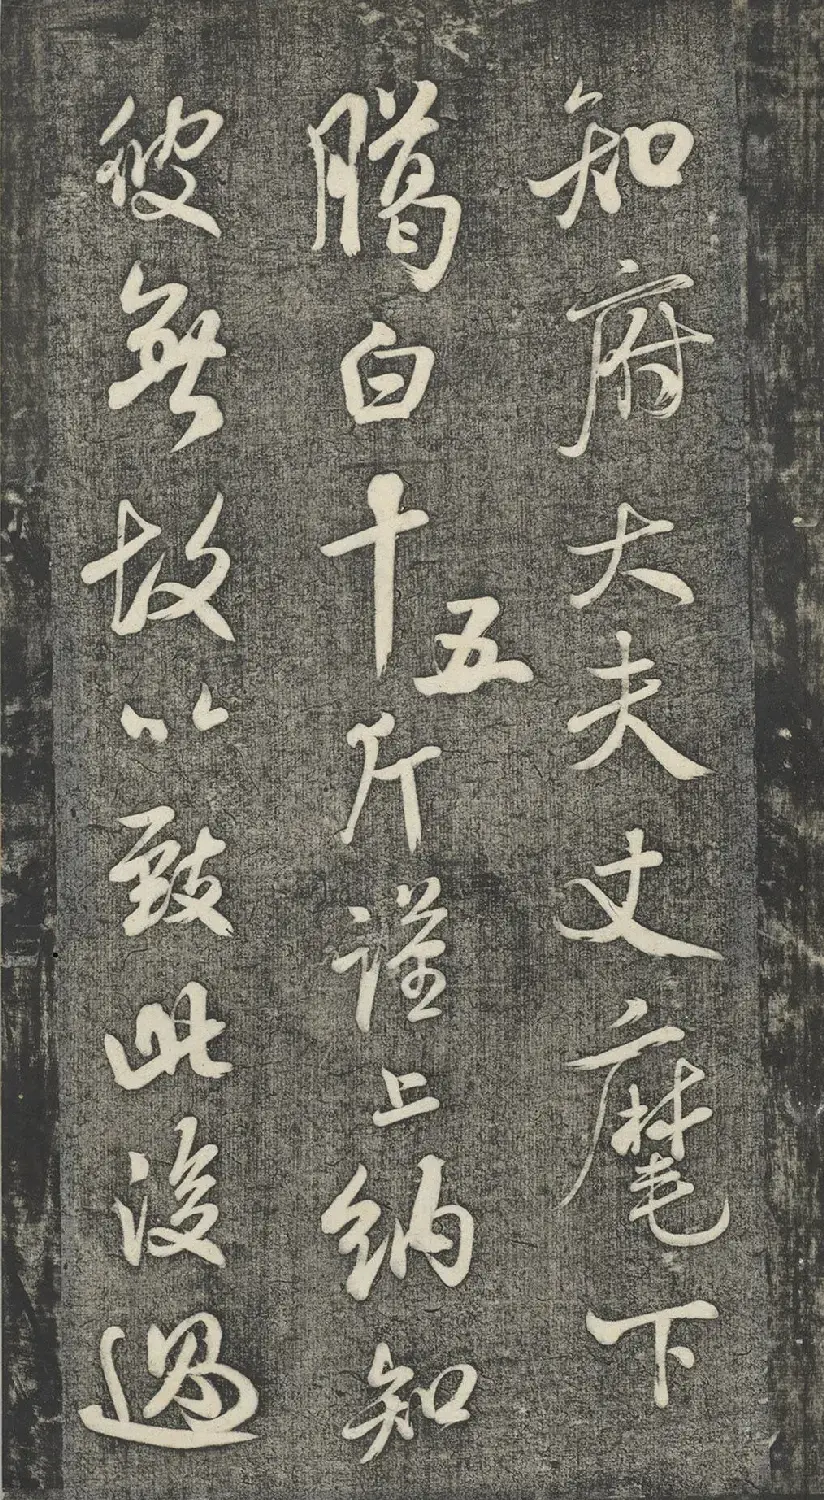 知府大夫丈麾下
臈白十五斤謹上納知
彼無故以致此後過